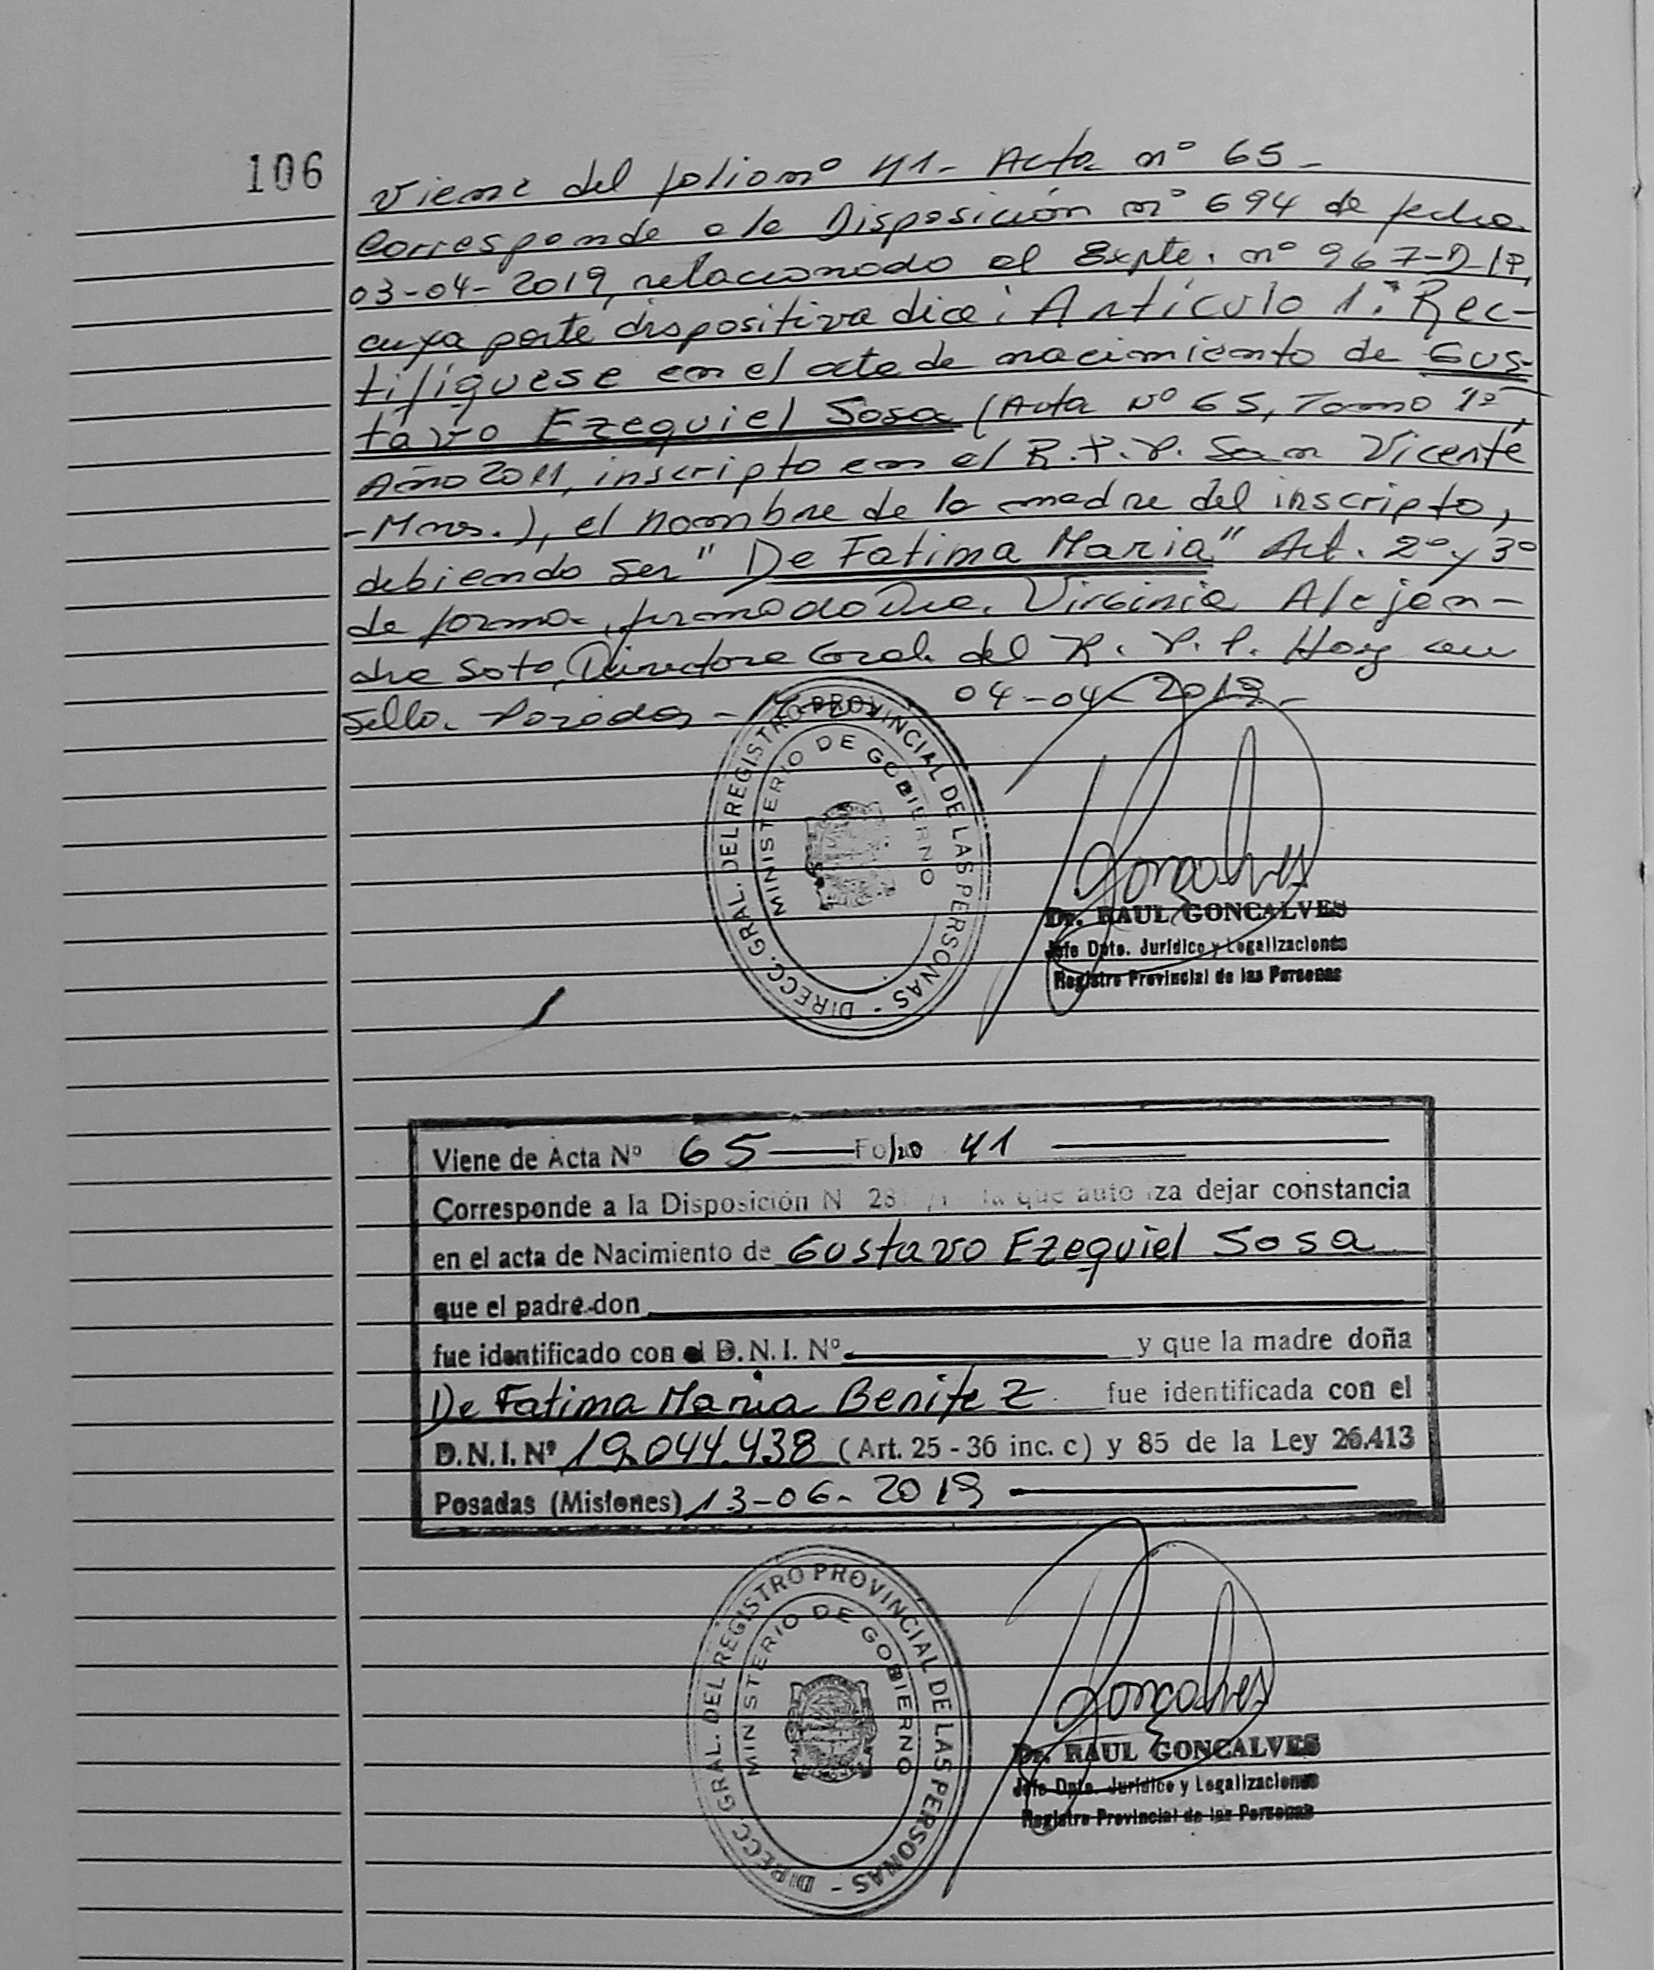 106
Viene del folio nº 41- Acta nº 65-
Corresponde a la Disposición nº 694 de fecha
03-04-2019, relacionado al Expte. nº 967-D-19,
cuya parte dispositiva dice: Artículo 1º: Rec-
tifíquese en el acta de nacimiento de Gus-
tavo Ezequiel Sosa (Acta Nº 65, Tomo 1º,
Año 2011, inscripto en el R.P.P. San Vicente
-Mnes.), el nombre de la madre del inscripto,
debiendo ser "De Fatima Maria" Art. 2º y 3º
de forma, firmado Dra. Virginia Alejan-
dra Soto, Directora Gral. del R. P. P. Hay un
sello. Posadas - 04-04-2019-
DIRECC. GRAL. DEL REGISTRO PROVINCIAL DE LAS PERSONAS -
MINISTERIO DE GOBIERNO
Gonçalves
Dr. RAUL GONCALVES
Jefe Dpto. Jurídico y Legalizaciones
Registro Provincial de las Personas
Viene de Acta Nº 65 Folio 41
Corresponde a la Disposición N 28 la que autoriza dejar constancia
en el acta de Nacimiento de Gustavo Ezequiel Sosa
que el padre don
fue identificado con el D.N.I. Nº y que la madre doña
De Fatima Maria Benitez fue identificada con el
D.N.I. Nº 19.044.438 (Art. 25 - 36 inc. c) y 85 de la Ley 26.413
Posadas (Misiones) 13-06-2019
DIRECC. GRAL. DEL REGISTRO PROVINCIAL DE LAS PERSONAS -
MINISTERIO DE GOBIERNO
Gonçalves
Dr. RAUL GONCALVES
Jefe Dpto. Jurídico y Legalizaciones
Registro Provincial de las Personas